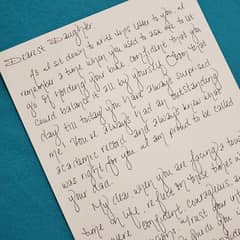 Dearest Daughter,
As I sit down to write this letter to you, I
remember a time when you used to ask me to
let go of you, confident that you
could balance all by yourself. From that
day till today, you have always surprised
me. You've always had an outstanding
academic record and always knew what
was right for you. I am proud to be called
your dad.
My dear, when you are facing a tough
time in life, on those times
were confident, courageous, and
trust you in